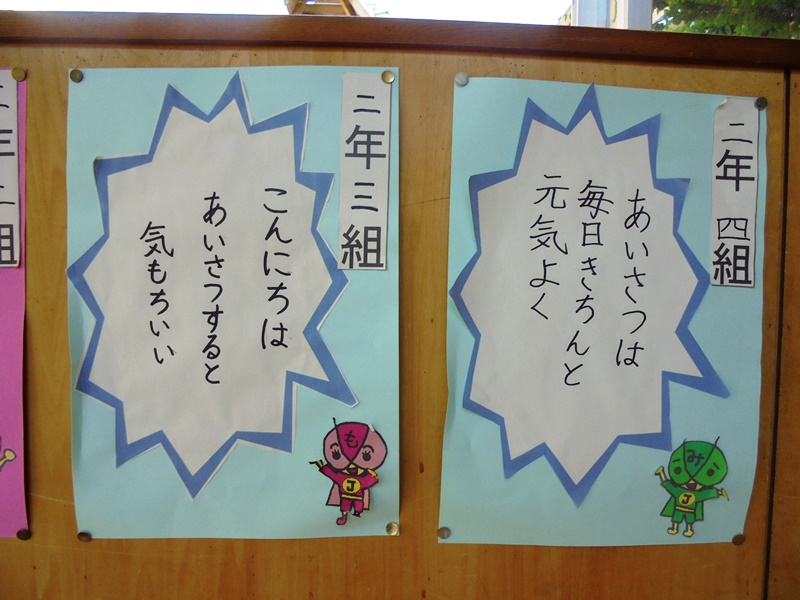 二年四組
あいさつは
毎日きちんと
元気よく
み
J
二年三組
こんにちは
あいさつすると
気もちいい
も
J
二年二組